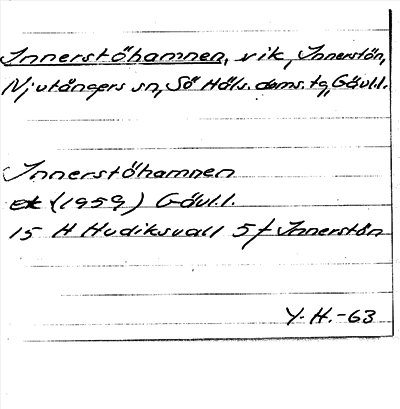 Innerstöhamnen, vik, Innerstön,
Njutångers sn, Sö Häls. doms. tg, Gävl.l.
Innerstöhamnen
ek (1959) Gävl.l.
15 H Hudiksvall 5f Innerstön
Y.H.-63